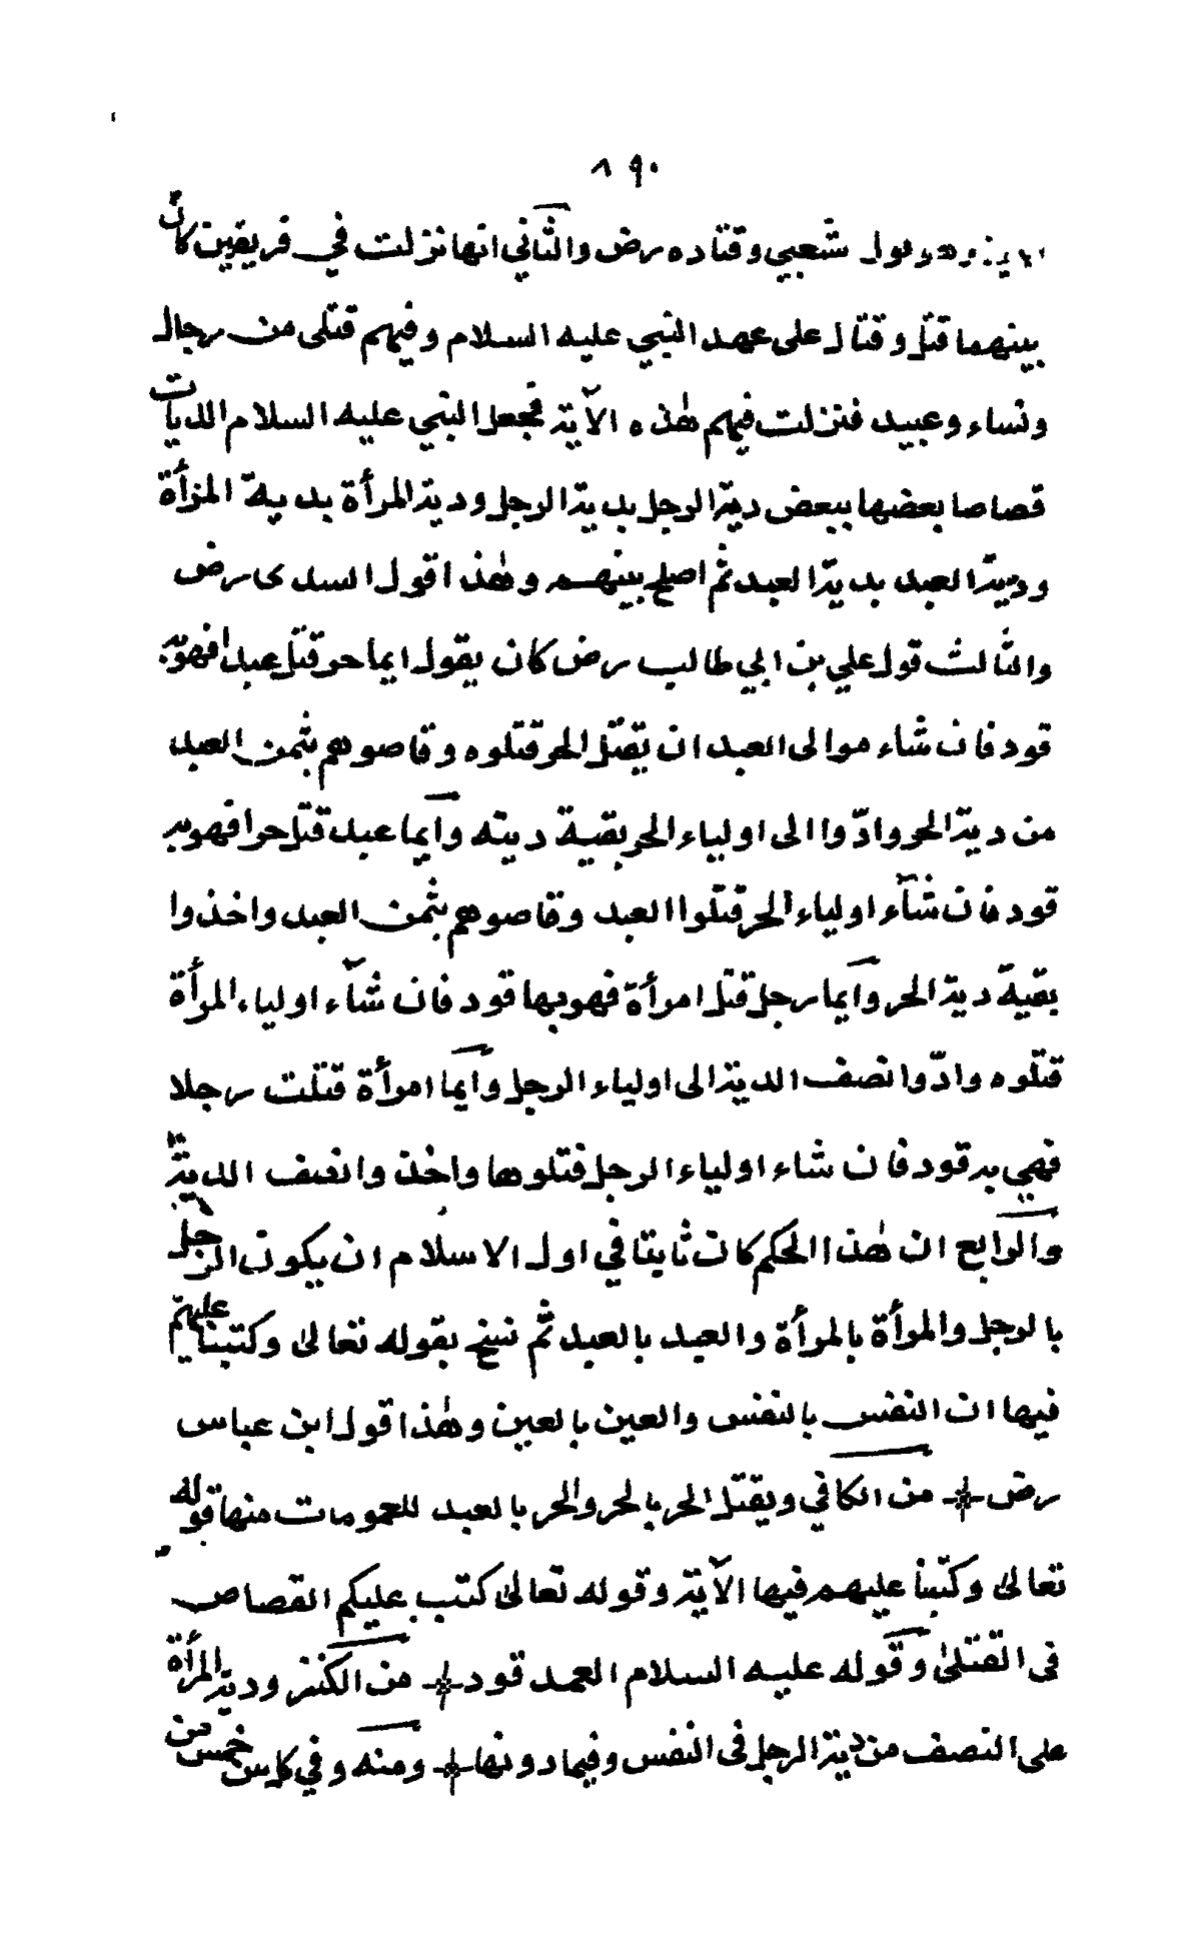 ٨٩٠
الآية وهو قول شعبي وقتاده رض والثاني انها نزلت في فريقين كان
بينهما قتل وقتال على عهد النبي عليه السلام وفيهم قتلى من رجال
ونساء وعبيد فنزلت فيهم هٰذه الآية فجعل النبي عليه السلام الديات
قصاصا بعضها ببعض دية الرجل بدية الرجل ودية المرأة بدية المرأة
ودية العبد بدية العبد ثم اصلح بينهم وهٰذا قول السدى رض
والثالث قول علي بن ابي طالب رض كان يقول ايما حر قتل عبدا فهو به
قود فان شاء موالى العبد ان يقتل الحر قتلوه وقاصوهم بثمن العبد
من دية الحر وادّوا الى اولياء الحر بقية ديته وآيما عبد قتل حرا فهو به
قود فان شآء اولياء الحر قتلوا العبد وقاصوهم بثمن العبد واخذوا
بقية دية الحر وآيما رجل قتل امرأة فهو بها قود فان شآء اولياء المرأة
قتلوه وادّوا نصف الدية الى اولياء الرجل وآيما امرأة قتلت رجلا
فهي به قود فان شاء اولياء الرجل قتلوها واخذوا نصف الدية
والرابع ان هٰذا الحكم كان ثابتا في اول الاسلام ان يكون الرجل
بالرجل والمرأة بالمرأة والعبد بالعبد ثم نسخ بقوله تعالىٰ وكتبنا عليهم
فيها ان النفس بالنفس والعين بالعين وهٰذا قول ابن عباس
رض ؞ من الكافي ويقتل الحر بالحر والحر بالعبد للعمومات منها قوله
تعالىٰ وكتبنا عليهم فيها الآية وقوله تعالىٰ كتب عليكم القصاص
فى القتلىٰ وقوله عليه السلام العمد قود ؞ من الكنز ودية المرأة
على النصف من دية الرجل فى النفس وفيما دونها ؞ ومنه وفي كل سن خمس من